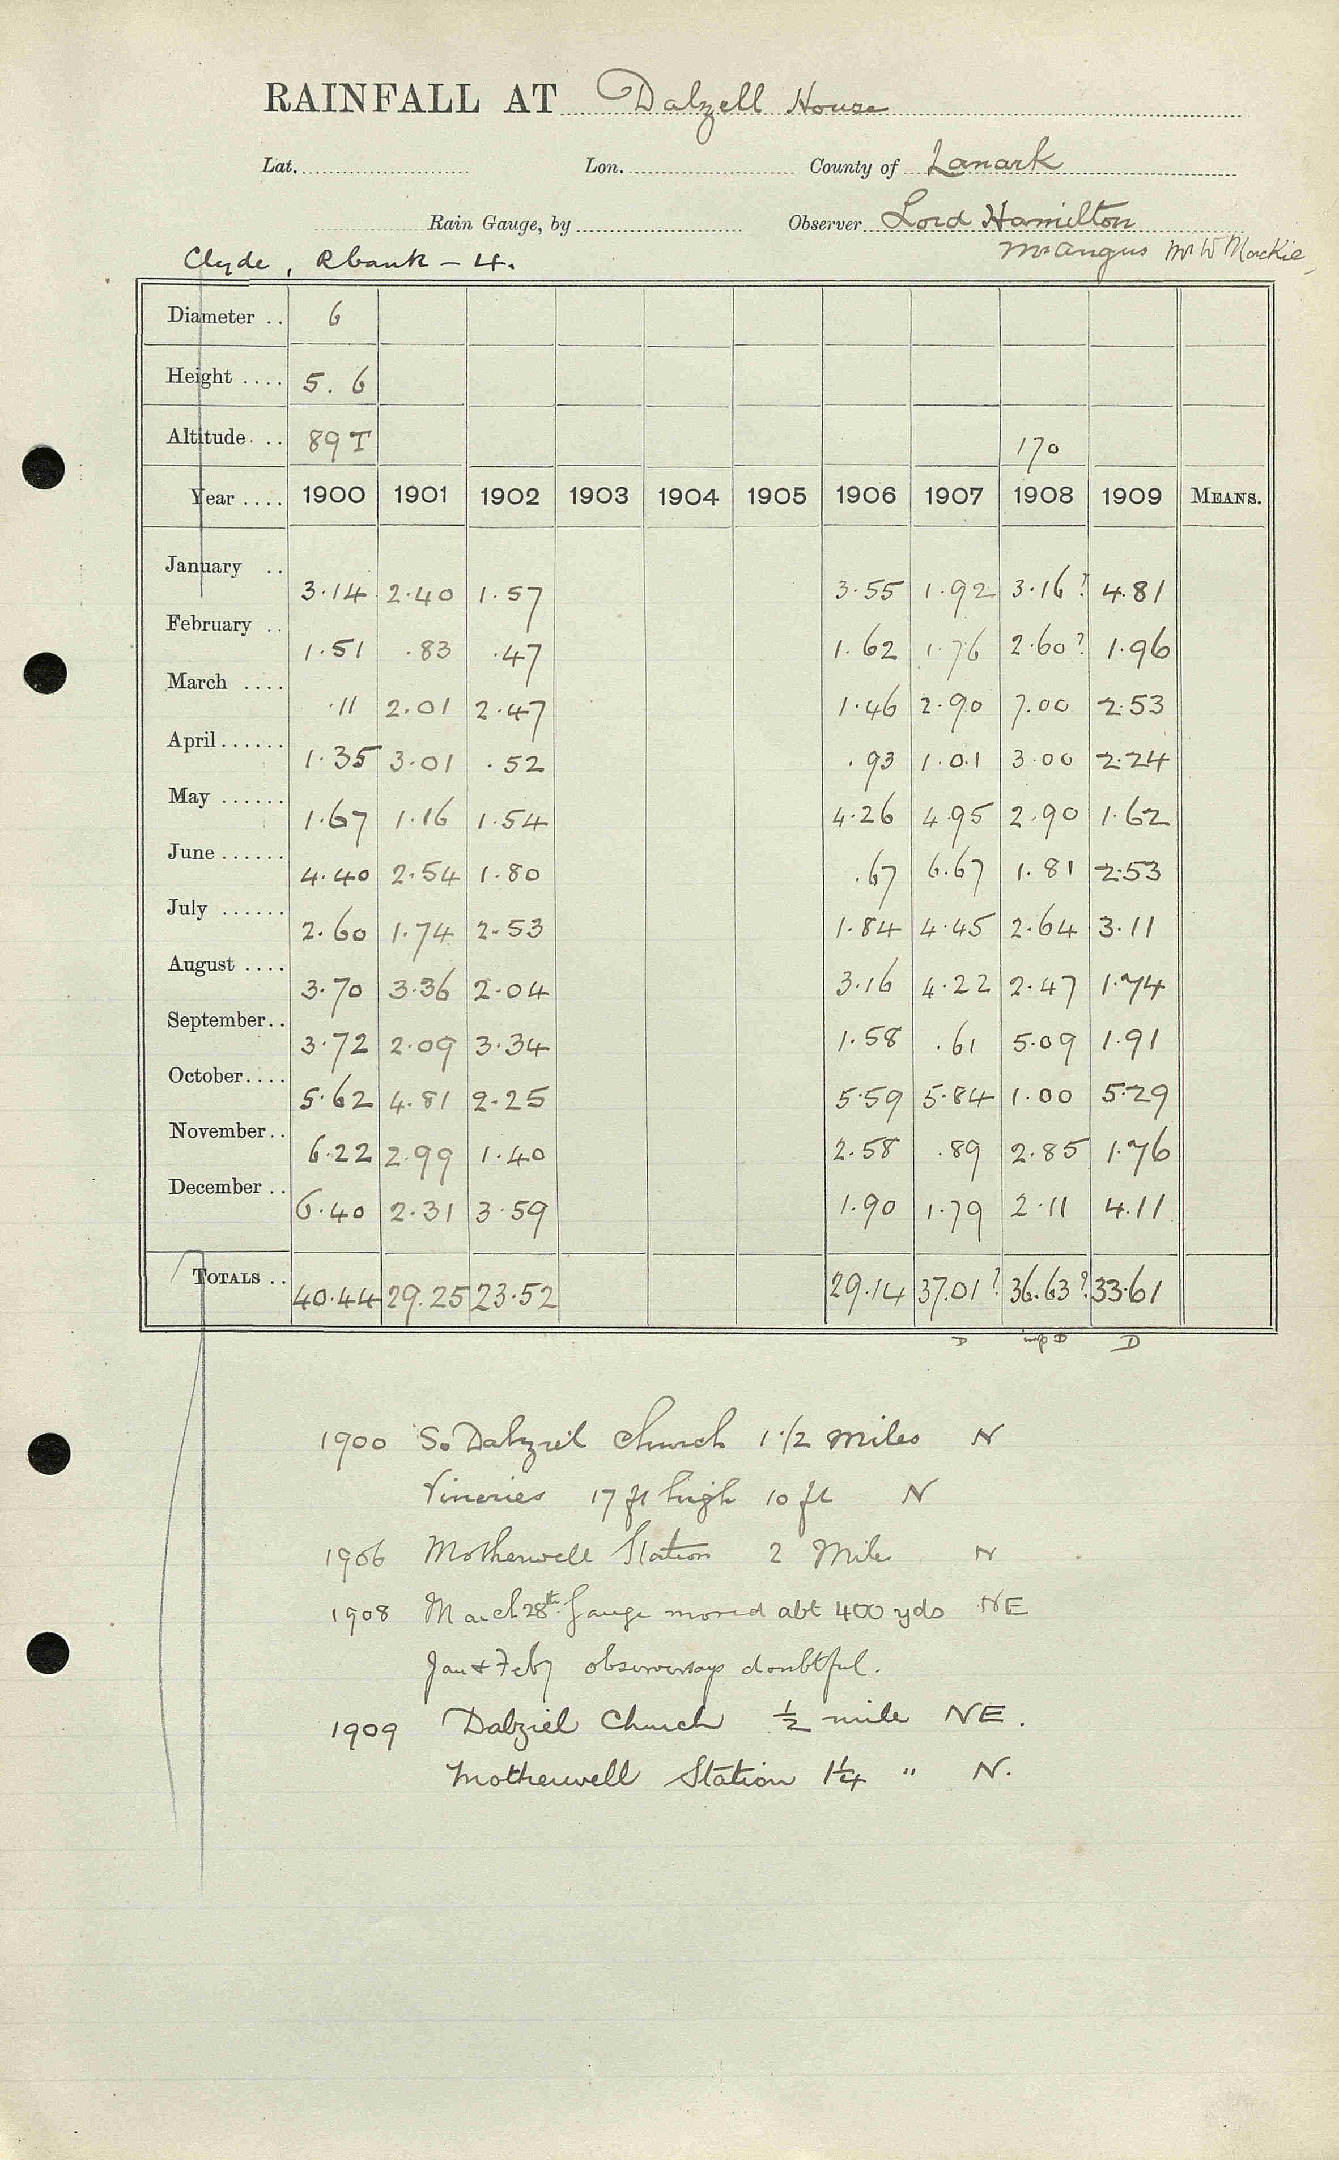 RAINFALL AT Dalzell House
Lat. Lon. County of Lanark
Rain Gauge, by Observer Lord Hamilton
Clyde, Rbank - 4. Mr Angus Mr W Mackie,
Diameter .. 6
Height .... 5. 6
Altitude. .. 89 T 170
Year .... 1900 1901 1902 1903 1904 1905 1906 1907 1908 1909 MEANS.
January .. 3.14 2.40 1.57 3.55 1.92 3.16? 4.81
February .. 1.51 .83 .47 1.62 1.76 2.60? 1.96
March .... .11 2.01 2.47 1.46 2.90 7.00 2.53
April...... 1.35 3.01 .52 .93 1.01 3.00 2.24
May ...... 1.67 1.16 1.54 4.26 4.95 2.90 1.62
June ...... 4.40 2.54 1.80 .67 6.67 1.81 2.53
July ...... 2.60 1.74 2.53 1.84 4.45 2.64 3.11
August .... 3.70 3.36 2.04 3.16 4.22 2.47 1.74
September.. 3.72 2.09 3.34 1.58 .61 5.09 1.91
October.... 5.62 4.81 2.25 5.59 5.84 1.00 5.29
November.. 6.22 2.99 1.40 2.58 .89 2.85 1.76
December .. 6.40 2.31 3.59 1.90 1.79 2.11 4.11
TOTALS .. 40.44 29.25 23.52 29.14 37.01? 36.63? 33.61
D D D
1900 So Dalziel Church 1 1/2 miles N
Vineries 17 ft high 10 ft N
1906 Motherwell Station 2 Miles N
1908 March 28th Gauge moved abt 400 yds NE
Jan & Feby observer says doubtful.
1909 Dalziel Church ½ mile NE.
Motherwell Station 1¼ " N.